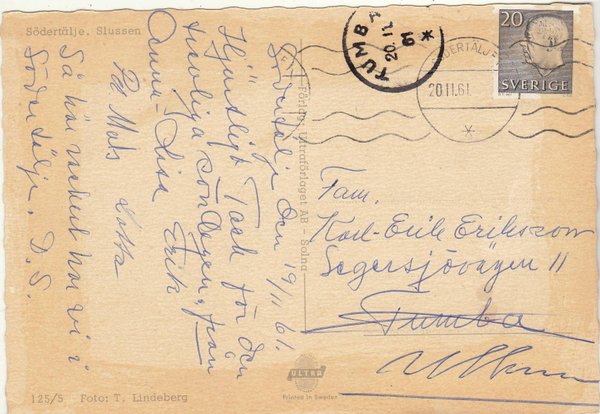 Södertälje. Slussen
Södertälje den 19/11 61.
Hjärtligt Tack för den
trevliga söndagen, från
Anna-Lisa Erik
Pd Mats Lotta
Så här vackert har vi i
Södertälje. D.S.
125/5 Foto: T. Lindeberg
Förlag: Ultraförlaget AB Solna
ULTRA
Printed in Sweden
TUMBA
20.11.
61
*
SÖDERTÄLJE
20 11.61
*
20
SVERIGE
Fam.
Karl-Erik Eriksson
Segersjövägen 11
Tumba